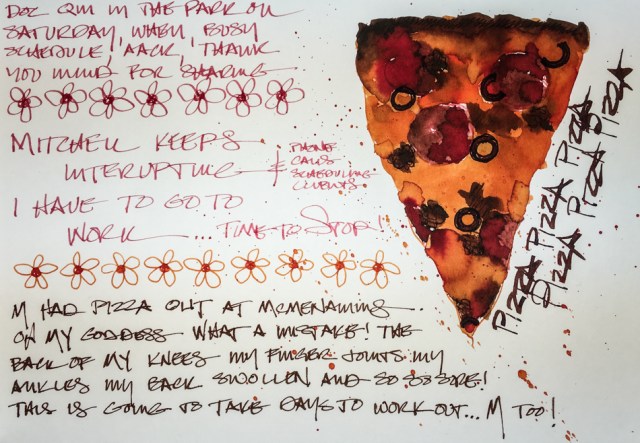 DOZ QIN IN THE PARK ON
SATURDAY, WHEN, BUSY
SCHEDULE, AACK, THANK
YOU MIND FOR SHARING
MITCHELL KEEPS
INTERUPTING &
PHONE
CALLS
SCHEDULING
CLIENTS
I HAVE TO GO TO
WORK ... TIME TO STOP!
M HAD PIZZA OUT AT MCMENAMINS
OH MY GODDESS WHAT A MISTAKE! THE
BACK OF MY KNEES MY FINGER JOINTS MY
ANKLES MY BACK SWOLLEN AND SO SO SORE!
THIS IS GOING TO TAKE DAYS TO WORK OUT... M TOO!
PIZZA PIZZA PIZZA
PIZZA PIZZA PIZZA